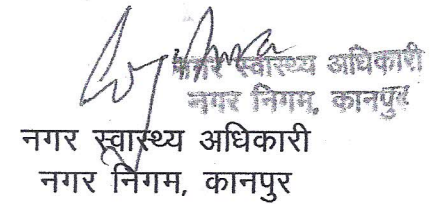 नगर स्वास्थ्य अधिकारी
नगर निगम, कानपुर
नगर स्वास्थ्य अधिकारी
नगर निगम, कानपुर